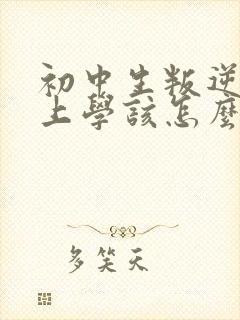 初中生叛逆
上學該怎麼
多笑天